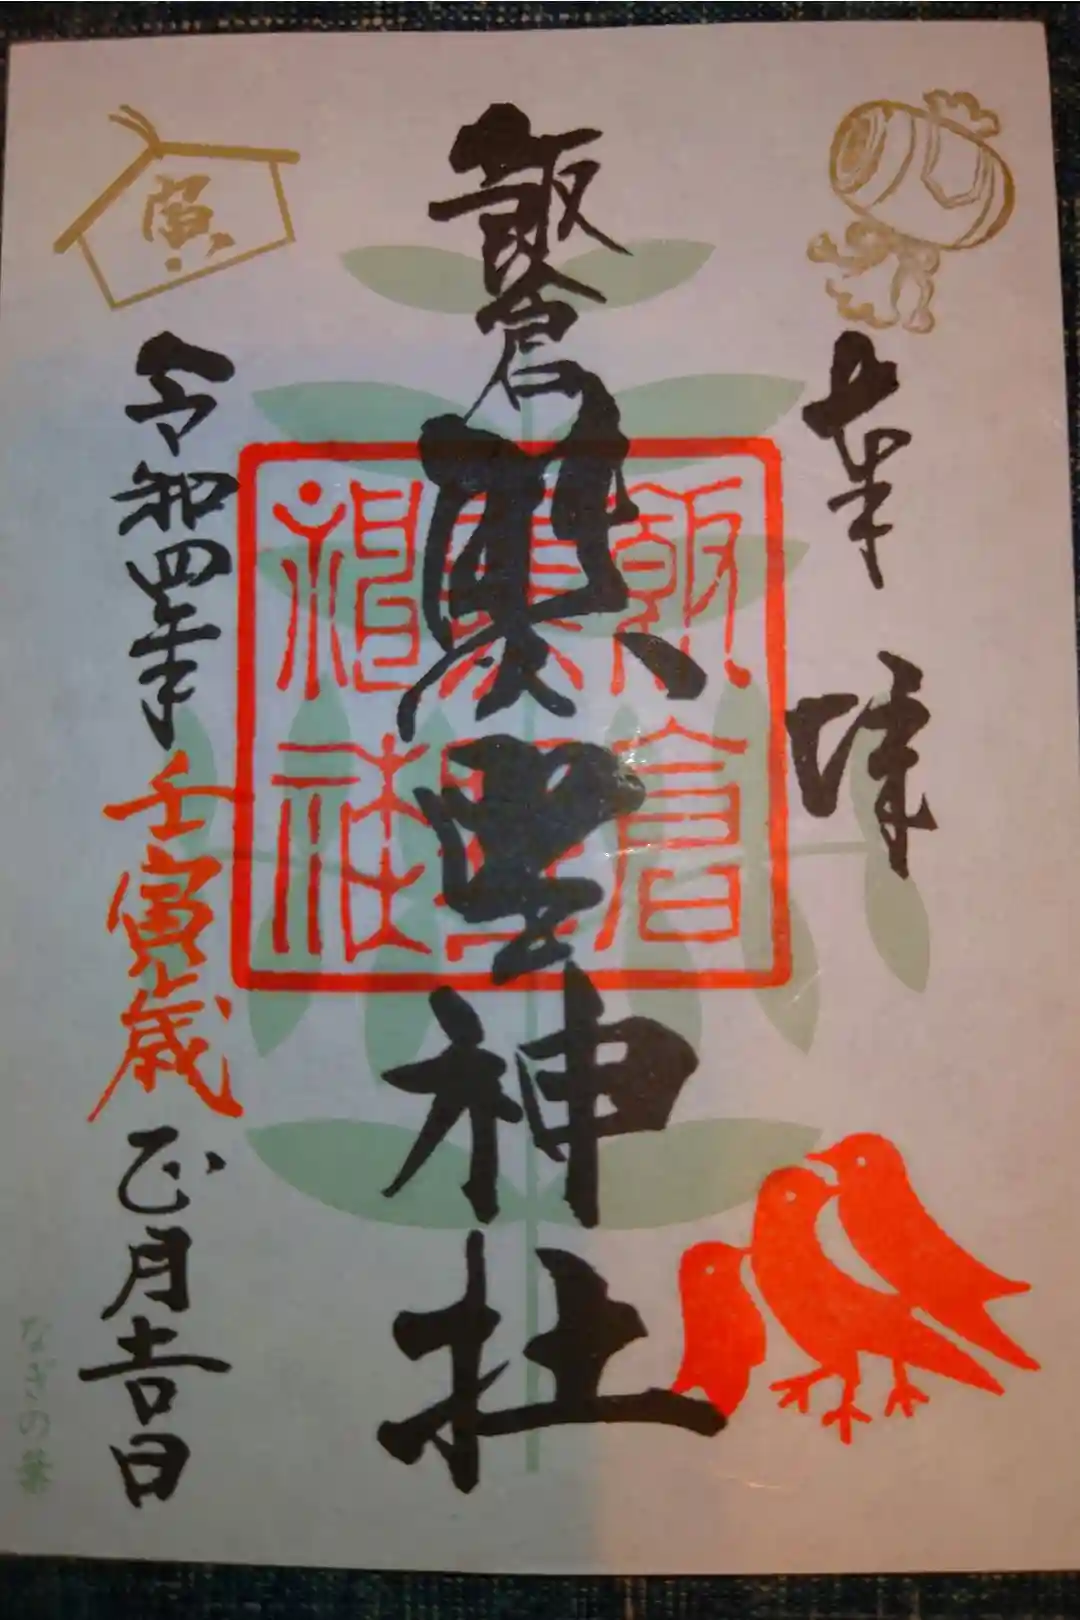 奉拝
飯倉
熊野神社
飯倉
熊野
神社
令和四年壬寅歳正月吉日
寅
なぎの葉